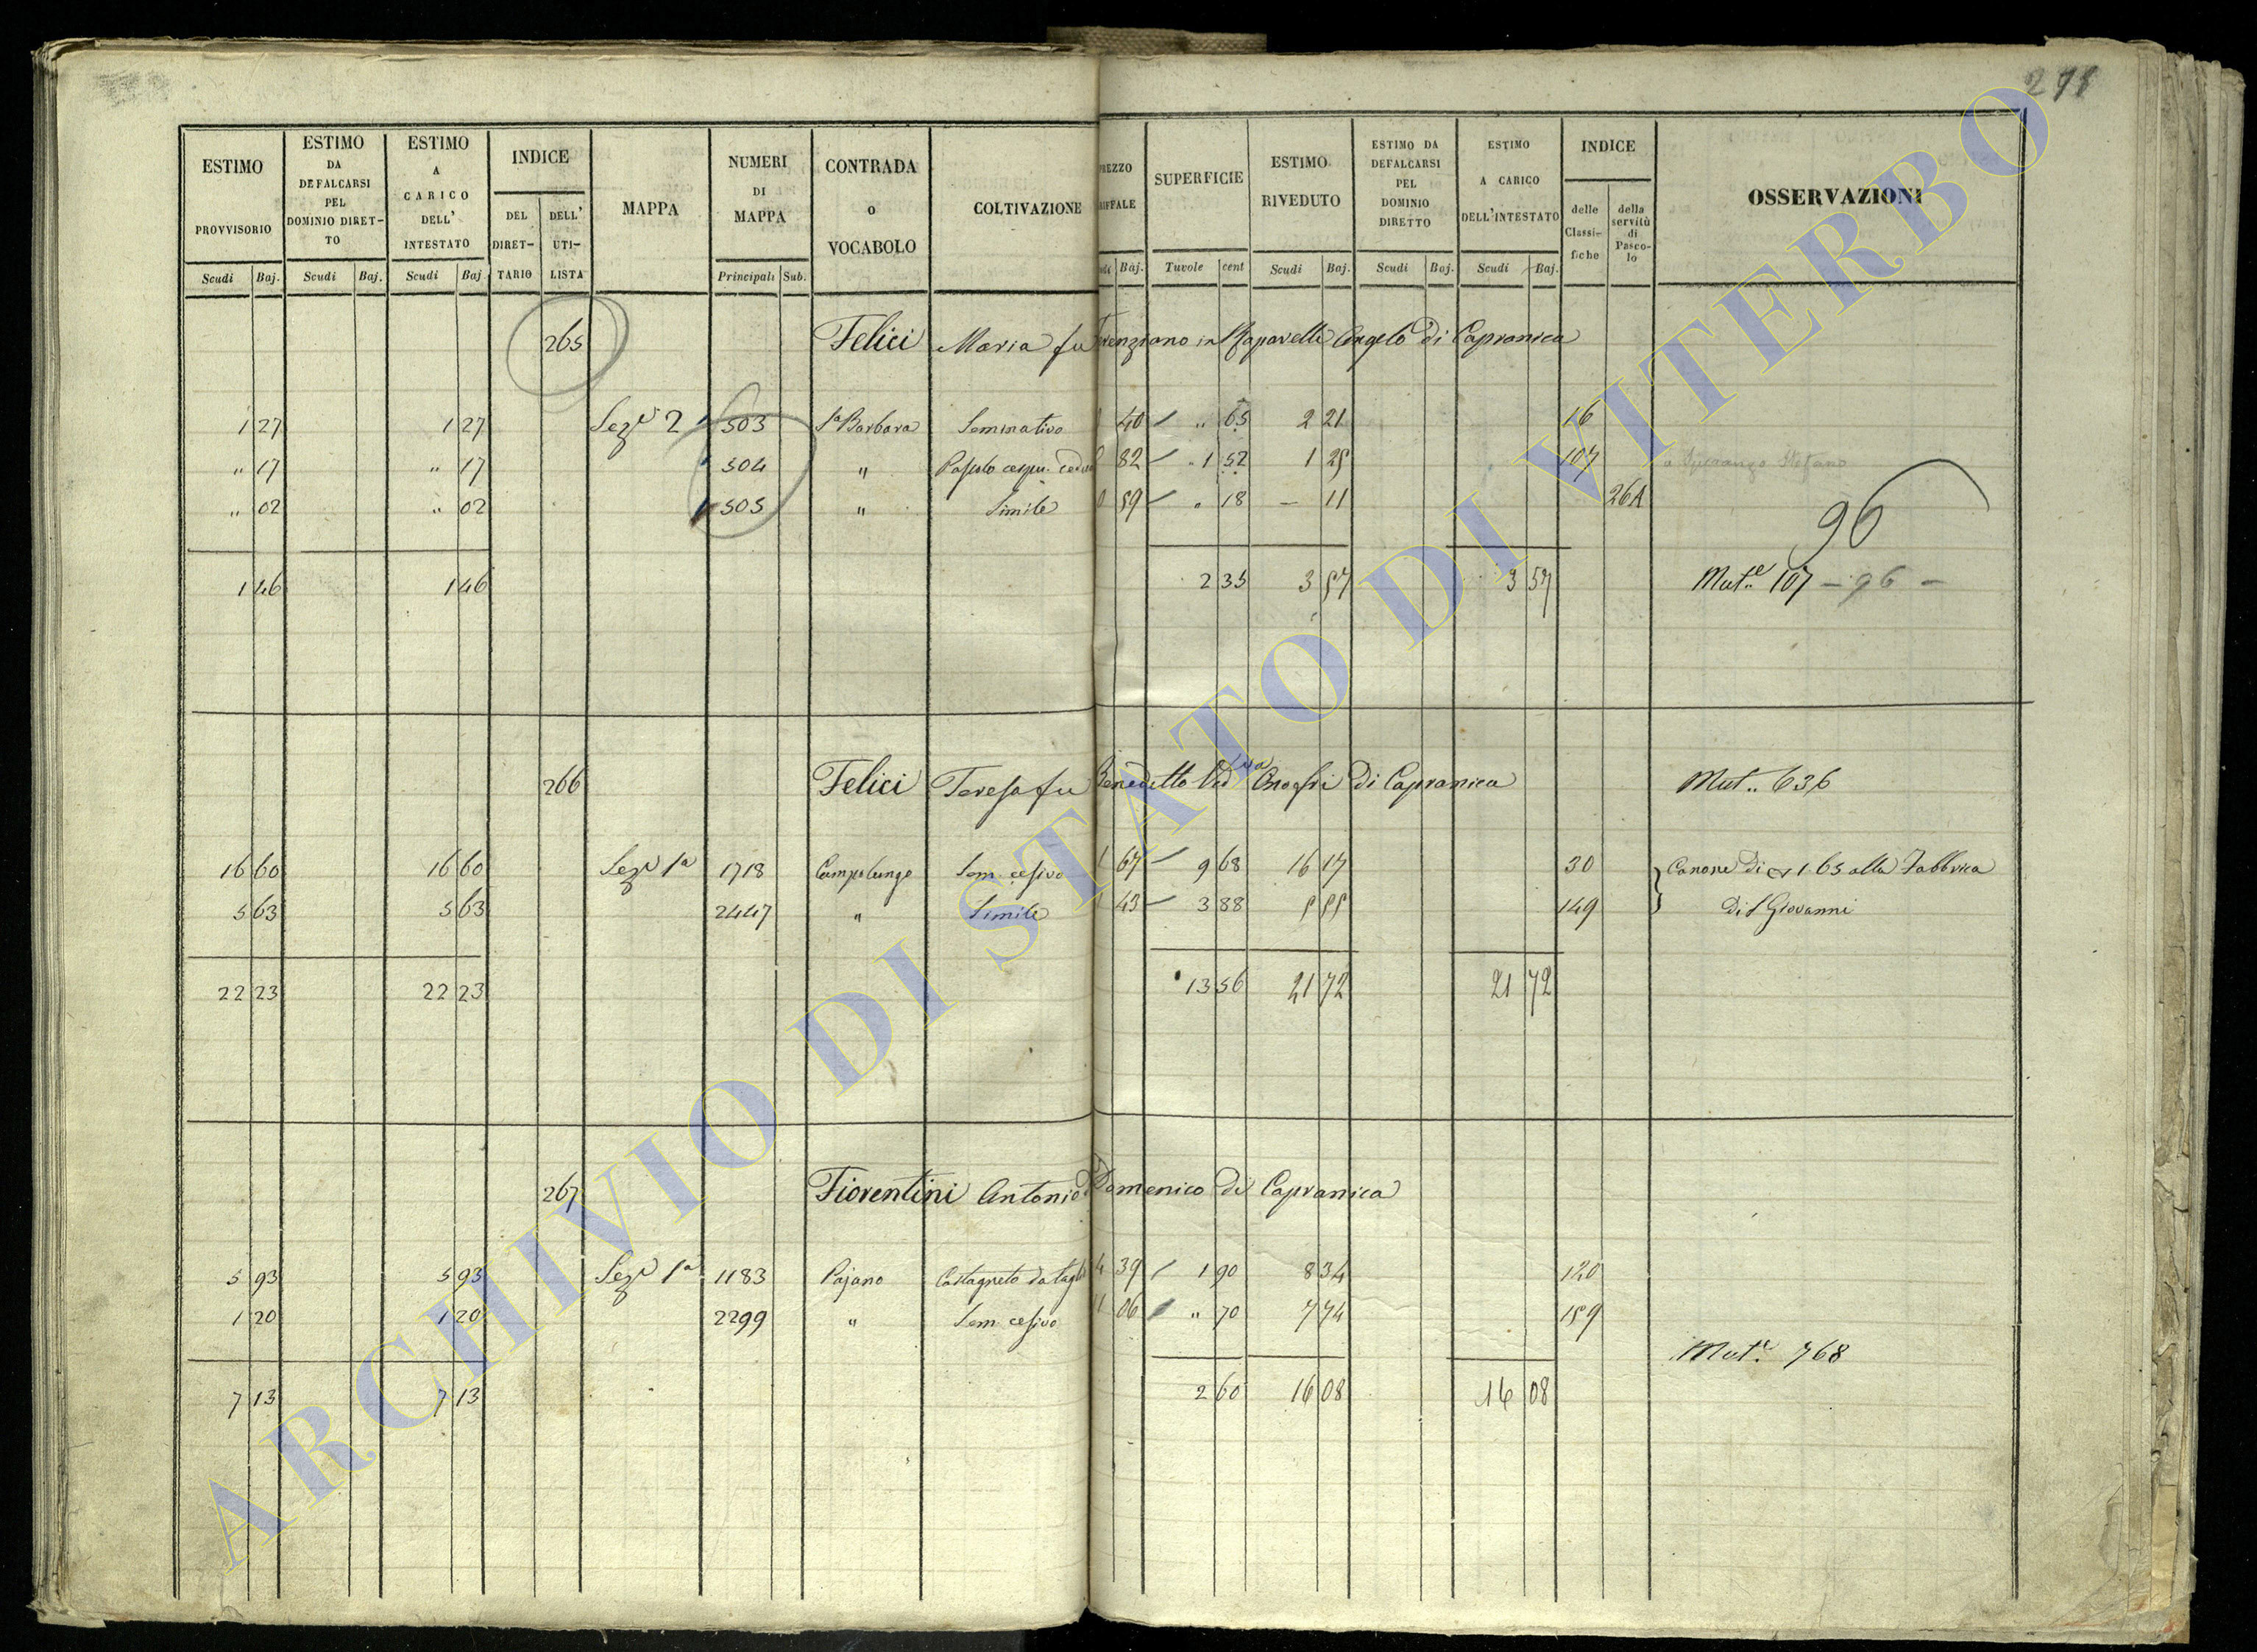 278
ESTIMO PROVVISORIO Scudi Baj.
ESTIMO DA DEFALCARSI PEL DOMINIO DIRET-TO Scudi Baj.
ESTIMO A CARICO DELL' INTESTATO Scudi Baj
INDICE DEL DIRET-TARIO DELL' UTI-LISTA
MAPPA
NUMERI DI MAPPA Principali Sub.
CONTRADA o VOCABOLO
COLTIVAZIONE
REZZO RIFFALE Baj.
SUPERFICIE Tavole cent
ESTIMO RIVEDUTO Scudi Baj.
ESTIMO DA DEFALCARSI PEL DOMINIO DIRETTO Scudi Baj.
ESTIMO A CARICO DELL'INTESTATO Scudi Baj.
INDICE delle Classi-fiche della servitù di Pasco-lo
OSSERVAZIONI
265 Felici Maria fu Angelo di Capranica
1 27 1 27 Seze 2 503 Sa Barbara Seminativo 40 " 65 2 21 16
" 17 " 17 504 " Pascolo cespu. 82 1 52 1 25 107 Stefano
" 02 " 02 505 " Simile 59 " 18 – 11 26A
96
1 46 1 46 2 35 3 57 3 57 Mute 107 – 96 –
266 Felici Teresa fu Benedetto Ved Onofri di Capranica Mut.. 636
16 60 16 60 Seze 1a 1718 Campolungo Sem. 67 9 68 16 17 30 Canone di 1.65 alla Fabbrica
5 63 5 63 2447 " Simile 43 3 88 5 55 149 di S Giovanni
22 23 22 23 13 56 21 72 21 72
267 Fiorentini Antonio Domenico di Capranica
5 93 5 93 Seze 1a 1183 Pajano Castagneto da taglio 4 39 1 90 8 34 120
1 20 1 20 2299 " Sem. 11 06 " 70 7 74 159
Mute 768
7 13 7 13 2 60 16 08 16 08
ARCHIVIO DI STATO DI VITERBO